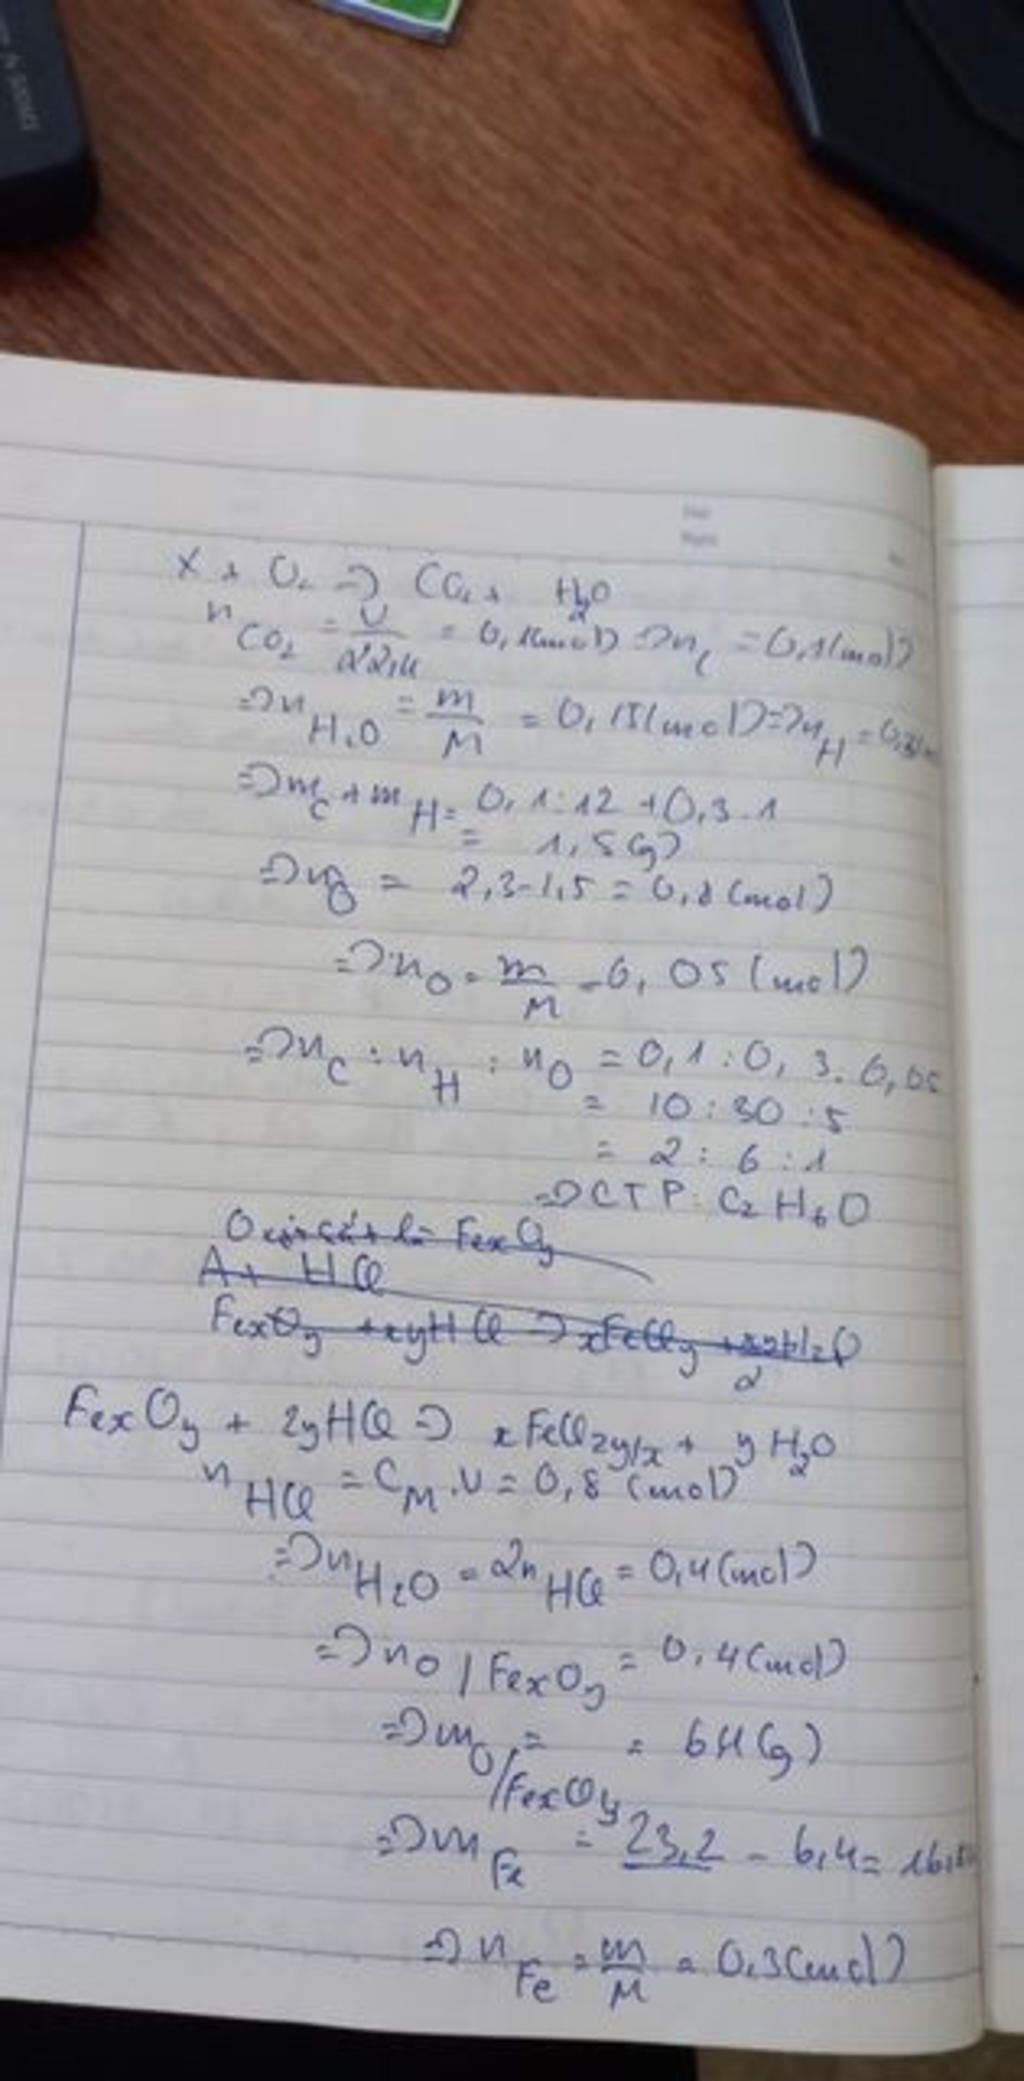 X + O2 => CO2 + H2O
nCO2 = V/22,4 = 0,1(mol) => nC = 0,1(mol)
=> nH2O = m/M = 0,15(mol) => nH = 0,3
=> mC + mH = 0,1.12 + 0,3.1
= 1,5(g)
=> nO = 2,3-1,5 = 0,8(mol)
=> nO = m/M = 0,05(mol)
=> nC : nH : nO = 0,1 : 0,3 : 0,05
= 10 : 30 : 5
= 2 : 6 : 1
=> CTP: C2H6O
là FexOy
A + HCl
FexOy + xyHCl => xFeCly + H2O
FexOy + 2yHCl => xFeCl2y/x + yH2O
nHCl = CM.V = 0,8(mol)
=> nH2O = 2nHCl = 0,4(mol)
=> nO/FexOy = 0,4(mol)
=> mO/FexOy = = 6,4(g)
=> mFe = 23,2 - 6,4 = 16,8
=> nFe = m/M = 0,3(mol)